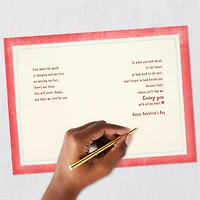 Even when the world
is changing and our lives
are moving too fast,
there's one thing
that will never change...
and that's my love for you.
So when you look ahead
to the future
or look back to the past...
don't forget to look beside you,
because that's
where you'll find me,
loving you
with all my heart.
Happy Valentine's Day